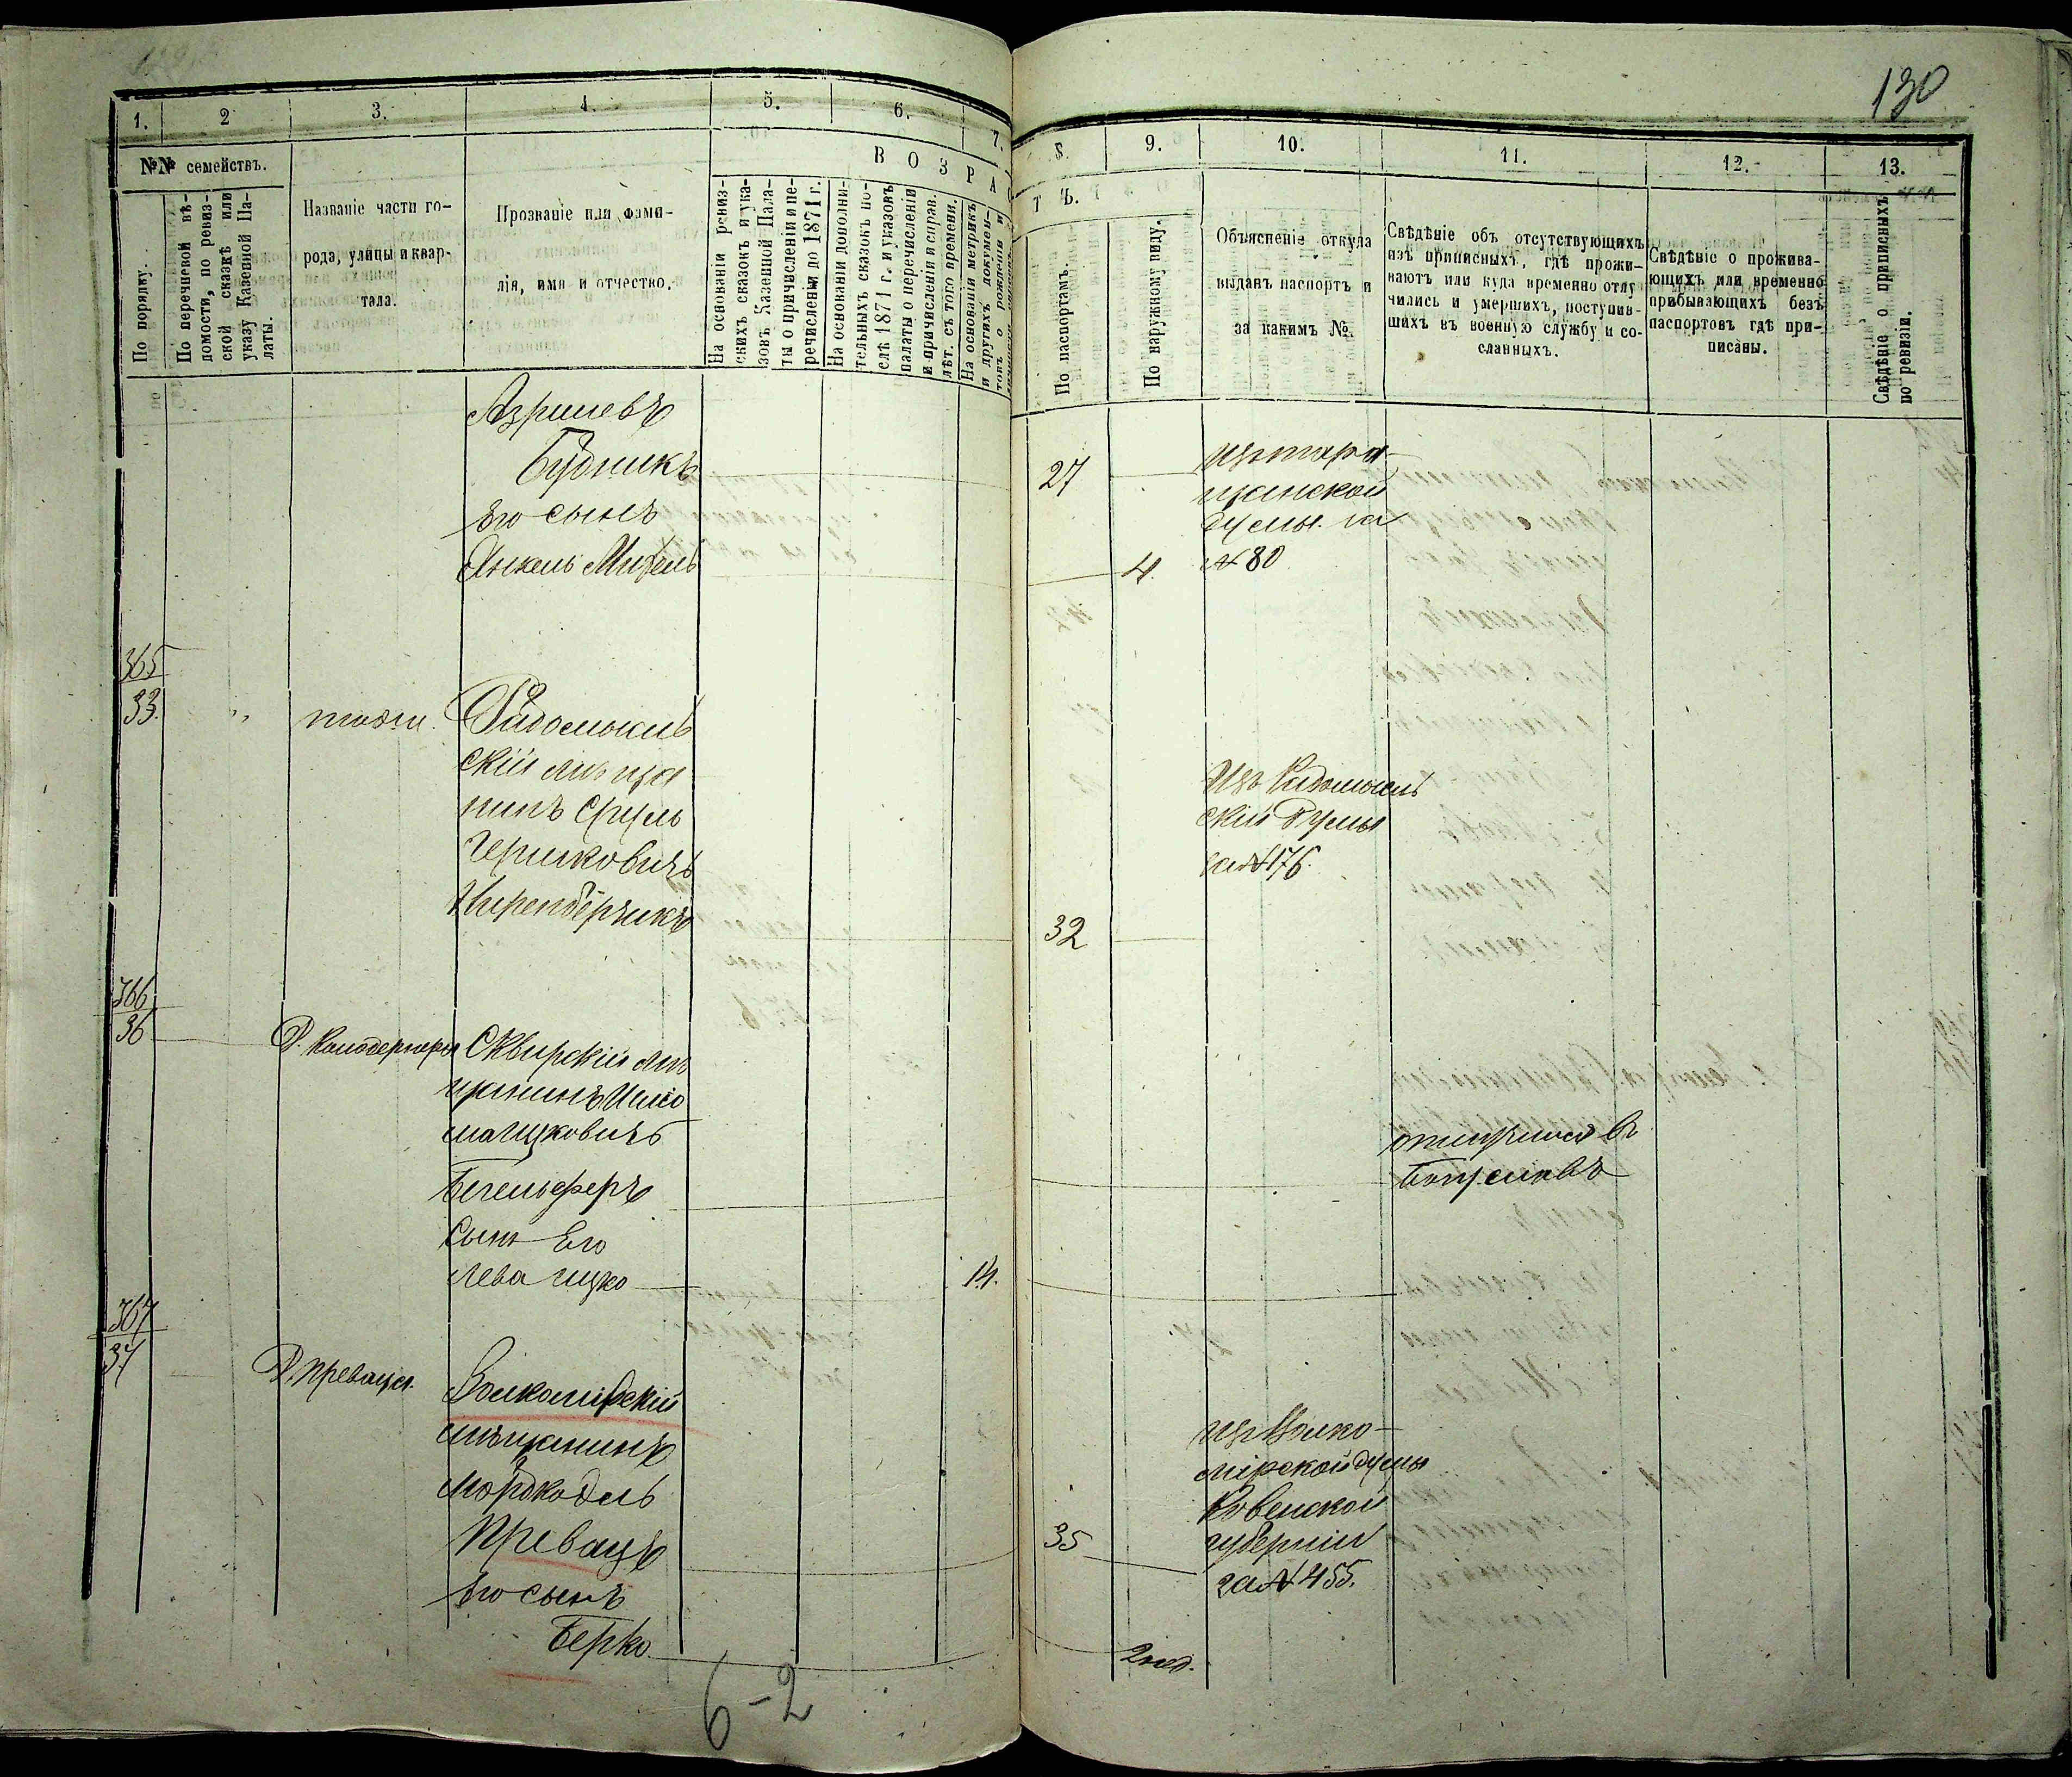 130
1.
2
3.
4.
5.
6.
7.
8.
9.
10.
11.
12.
13.
№№ семействъ.
По порядку.
По перечневой вѣ-
домости, по ревиз-
ской сказкѣ или
указу Казенной Па-
латы.
Названіе части го-
рода, улицы и квар-
тала.
Прозваніе или фами-
лія, имя и отчество.
В О З Р А
На основаніи ревиз-
скихъ сказокъ и ука-
зовъ Казенной Пала-
ты о причисленіи и пе-
речислены до 1871 г.
На основаніи дополни-
тельныхъ сказокъ по-
слѣ 1871 г. и указовъ
палаты о перечисленіи
и причисленіи и справ.
лѣт. съ того времени.
На основаніи метрикъ
и другихъ докумен-
товъ о рожденіи и
Т Ъ.
По паспортамъ.
По наружному виду.
Объясненіе откуда
выданъ паспортъ и
за какимъ №.
Свѣдѣніе объ отсутствующихъ
изъ приписныхъ, гдѣ прожи-
ваютъ или куда временно отлу
чились и умершихъ, поступив-
шихъ въ военную службу и со-
сланныхъ.
Свѣдѣніе о прожива-
ющихъ или временно
прибывающихъ безъ
паспортовъ гдѣ при-
писаны.
Свѣдѣніе о приписныхъ
по ревизіи.
Азрилевъ
Будникъ
27
Изъ тара-
щанской
думы за
№ 80
Его сынъ
Янкель
4.
365
33.
"
тоже.
Радомысль
скій мѣща
нинъ Сруль
Гершковичъ
32
Изъ Радомысль
ской Думы
за № 176.
366
36
Сквирскій мѣ
щанинъ
Ицковичъ
отлучился въ
Богуславъ
Сынъ Его
Лева Ицко
14.
367
37
Д. Преваца.
Волкомирскій
мѣщанинъ
Мордко
Превацъ
35
Изъ Волко-
мірской думы
Ковенской
губерніи
за № 455.
Его сынъ
Берко.
2 нед.
6-2